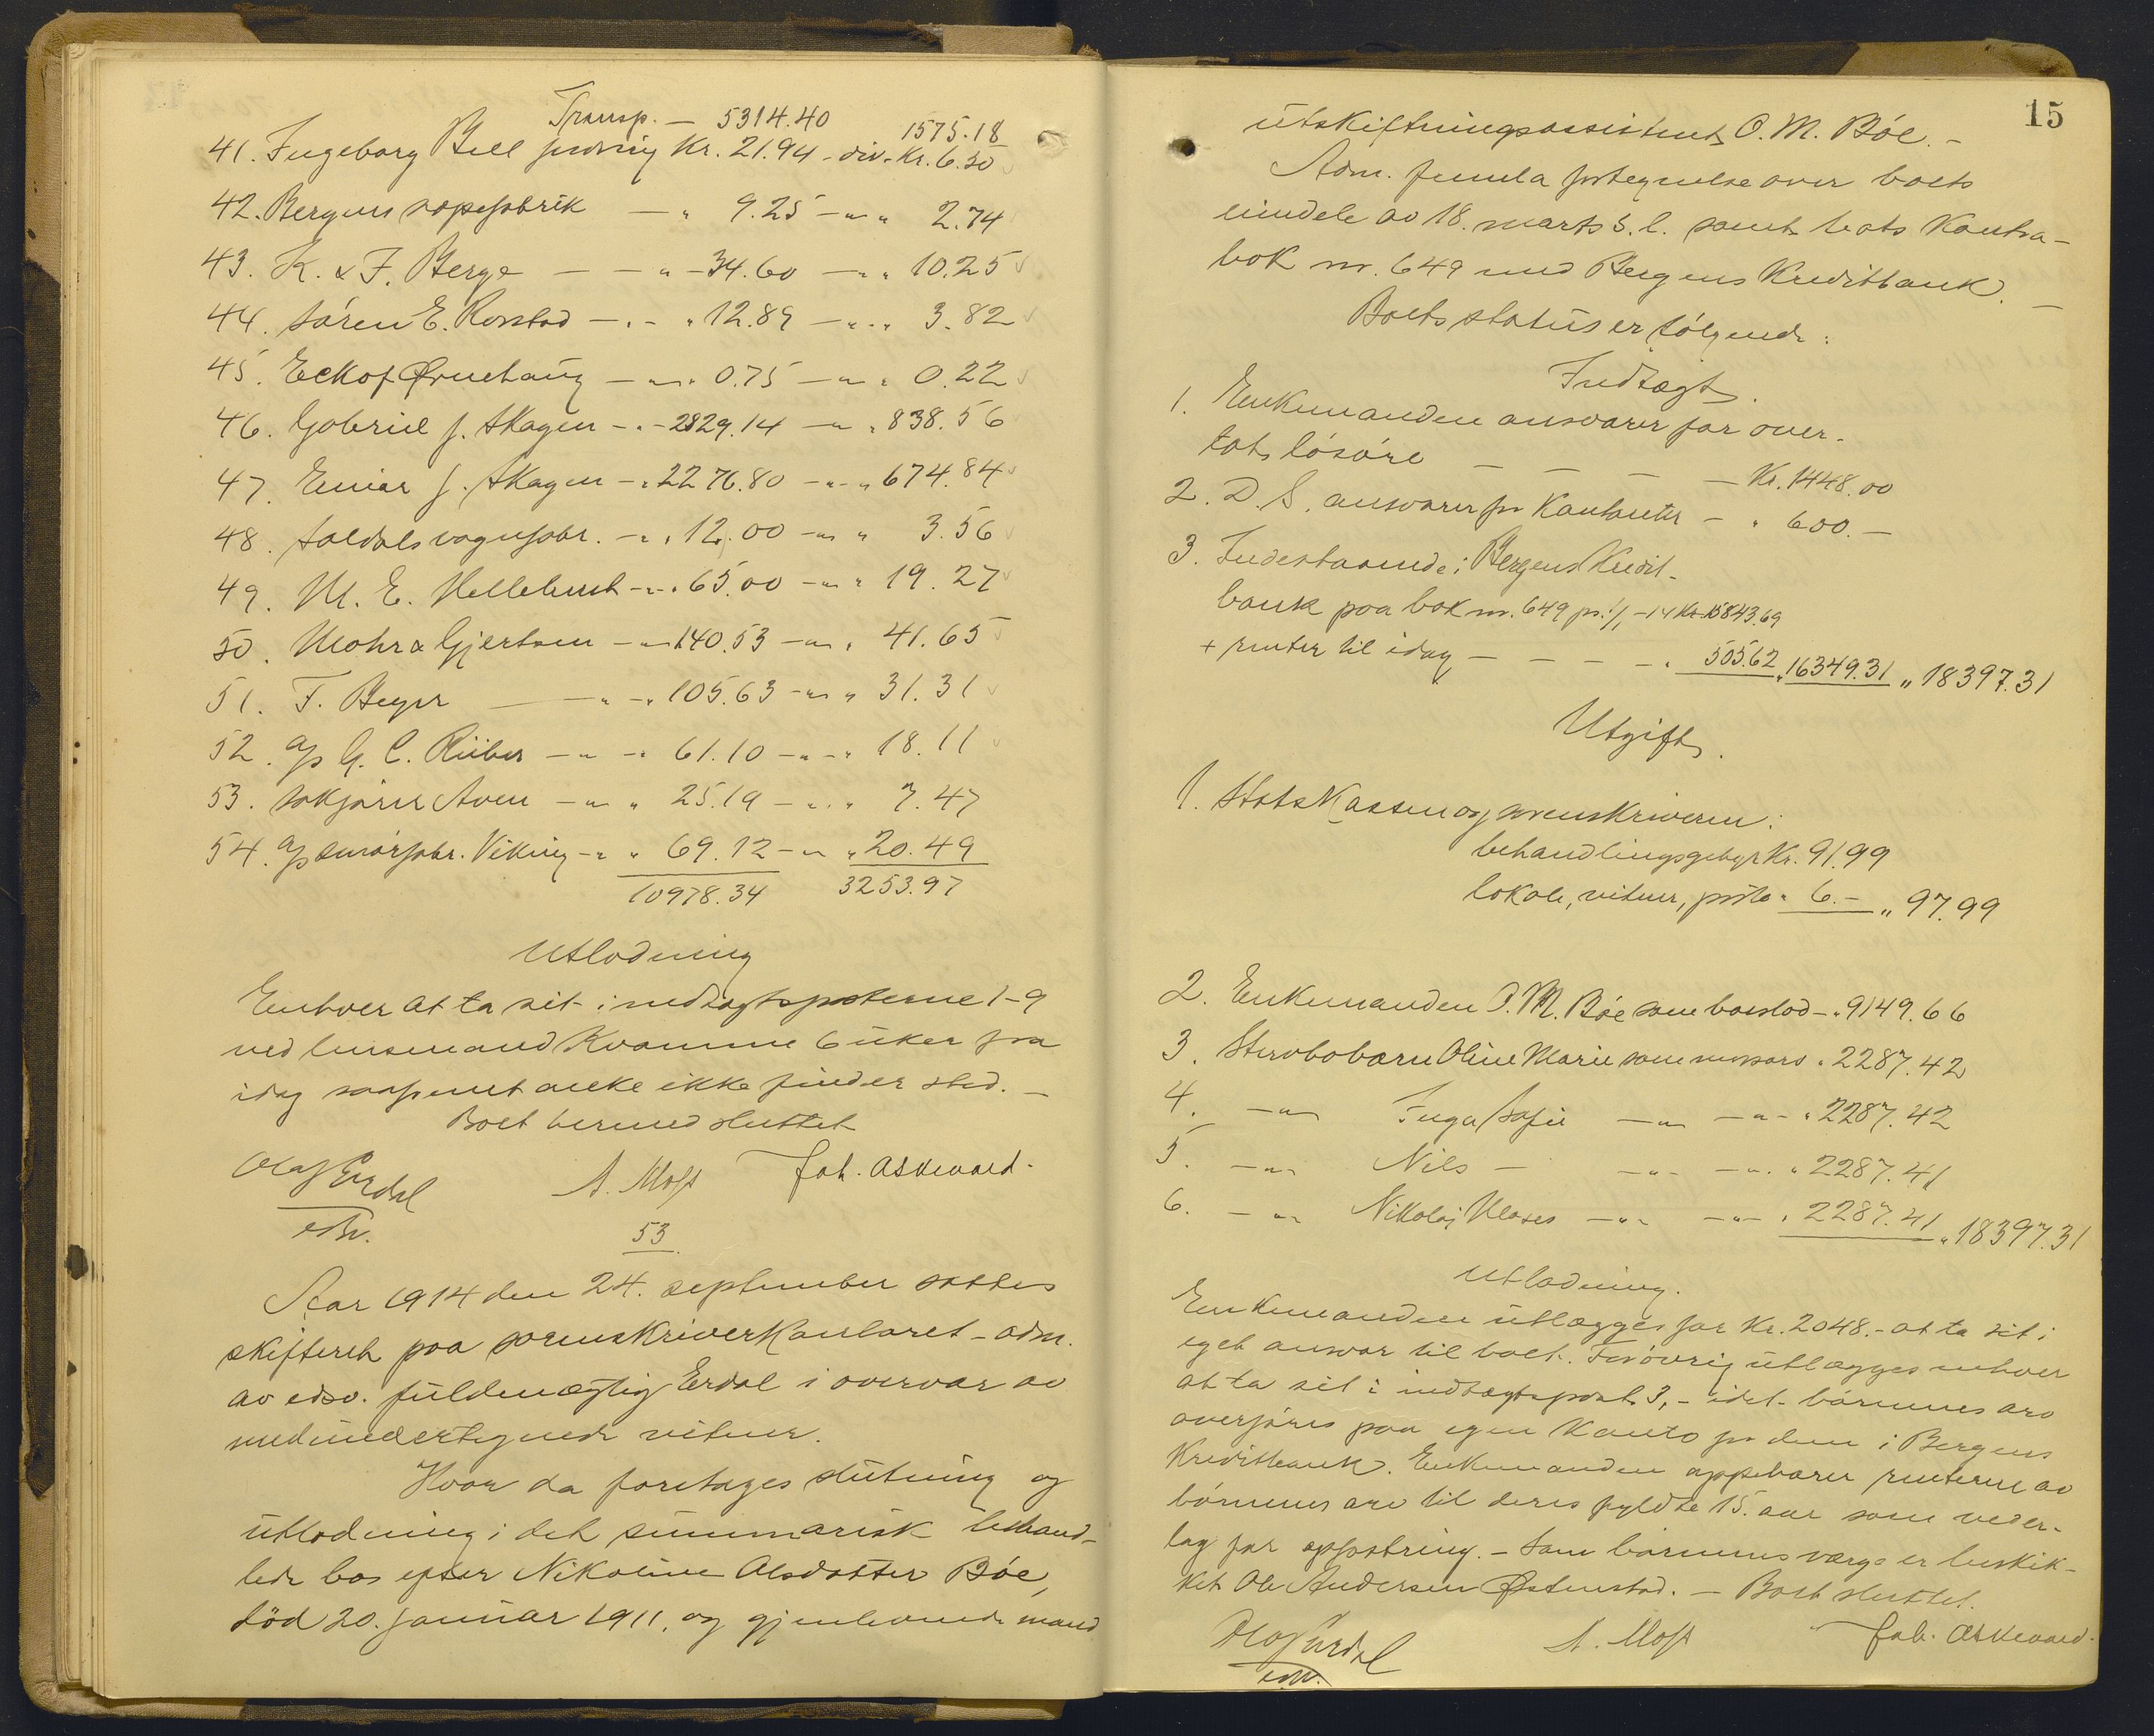 Transp. — 5314.40 1575.18
41. Ingeborg Bell fordring Kr. 21.94 - div. Kr. 6.50
42. Bergens sæpefabrik — " 9.25 — " " 2.74
43. K. & F. Berge — — " - 34.60 — " " 10.25
44. Søren E. Rorstad — " - " 12.89 — " " 3.82
45. Eckof Ørnehaug — " " 0.75 — " " 0.22
46. Gabriel J. Skagen — " - 2829.14 — " " 838.56
47. Einar J. Skagen — " 2276.80 — " " 674.84
48. Søldals vognfabr. — " " 12.00 — " " 3.56
49. M. E. Hellebust — " " 65.00 — " " 19.27
50. Mohr & Gjertsen — " 140.53 — " " 41.65
51. F. Beyer — " - " 105.63 — " " 31.31
52. A/s G. C. Rieber — " - " 61.10 — " - " 18.11
53. sakfører Aven — " " 25.19 — " " 7.47
54. A/s smørfabr. Viking — " " 69.12 — " " 20.49
10978.34 3253.97
Utlodning
Enhver at ta sit i indtægtsposterne 1-9
ved lensmand Kvamme 6 uker fra
idag saafremt anke ikke finder sted. —
Boet hermed sluttet
Olaf Erdal A. Moss Joh. Askevold.
edsv.
53
Aar 1914 den 24. september sattes
skifteret paa sorenskriverkontoret - adm.
av edsv. fuldmægtig Erdal i overvær av
medundertegnede vitner.
Hvor da foretages slutning og
utlodning i det summarisk behand-
lede bos efter Nikoline Olsdatter Bøe,
död 20. januar 1911, og gjenlevende mand
15
utskiftningsassistent O. M. Bøe. -
Adm. fremla fortegnelse over boets
eiendele av 18. marts s. l. samt boets Kontra-
bok nr. 649 med Bergens Kreditbank. —
Boets status er følgende:
Indtægt.
1. Enkemanden ansvarer for over-
tat løsøre — — — — Kr. 1448.00
2. D. S. ansvarer for Kontanter — " 600.—
3. Indestaaende i Bergens Kredit-
bank paa bok nr. 649 pr. 1/1 -14 Kr. 15843.69
+ renter til idag — — — — " 505.62 " 16349.31 " 18397.31
Utgift.
1. Statskassen og sorenskriveren:
behandlingsgebyr Kr. 91.99
lokale, vitner, porto " 6.— " 97.99
2. Enkemanden O. M. Bøe som boeslod — " 9149.66
3. Stervbobarn Oline Marie som morsarv " 2287.42
4. — " — Inga Sofie — " — — " — " 2287.42
5. — " — Nils — — " — — " — " 2287.41
6. — " — Nikolai Kloses — " — — " — " 2287.41 " 18397.31
Utlodning.
Enkemanden utlægges for Kr. 2048.- at ta sit i
eget ansvar til boet. Forøvrig utlægges enhver
at ta sit i indtægtspost 3, - idet børnenes arv
overføres paa egen Konto for dem i Bergens
Kreditbank. Enkemanden oppebærer renterne av
børnenes arv til deres fyldte 15. aar som veder-
lag for opfostring. — Som børnenes verge er beskik-
ket Ole Andersen Østenstad. — Boet sluttet.
Olaf Erdal A. Moss Joh. Askevold.
edsv.